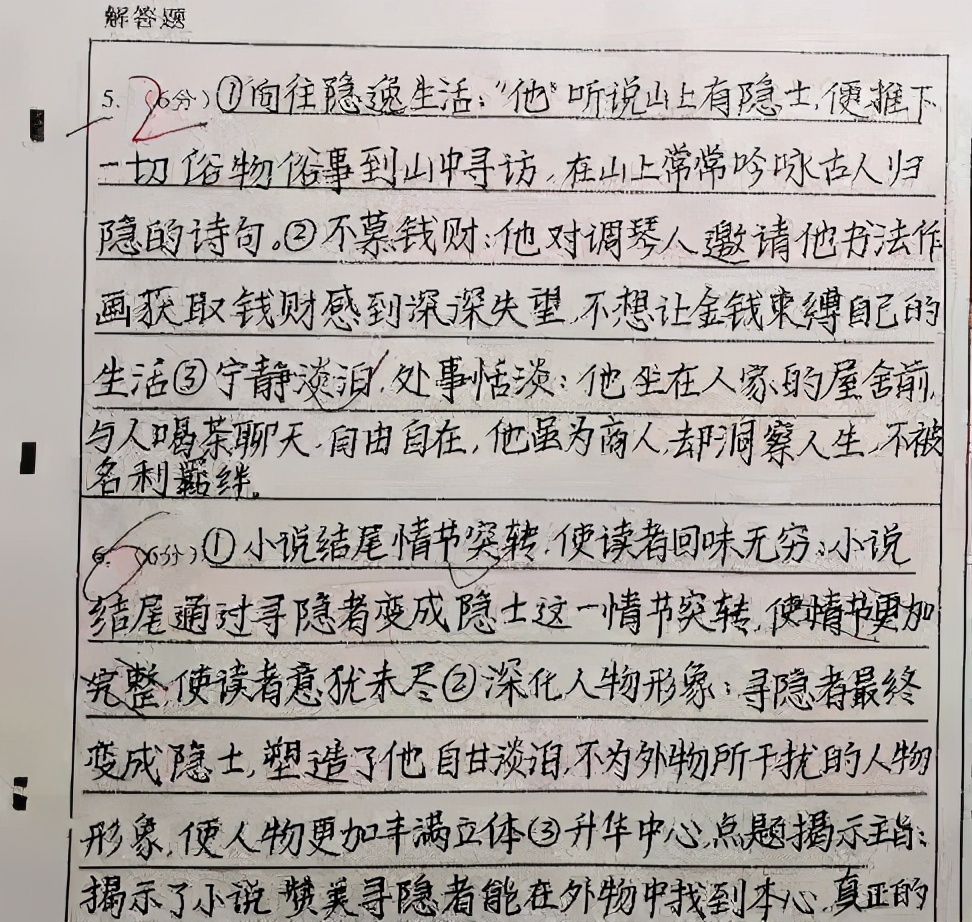 解答题
5. 2 (6分) ①向往隐逸生活:“他”听说山上有隐士,便推下
一切俗物俗事到山中寻访,在山上常常吟咏古人归
隐的诗句。②不慕钱财:他对调琴人邀请他书法作
画获取钱财感到深深失望,不想让金钱束缚自己的
生活③宁静淡泊,处事恬淡:他坐在人家的屋舍前,
与人喝茶聊天,自由自在,他虽为商人,却洞察人生,不被
名利羁绊。
6. (6分) ①小说结尾情节突转,使读者回味无穷:小说
结尾通过寻隐者变成隐士这一情节突转,使情节更加
完整,使读者意犹未尽②深化人物形象:寻隐者最终
变成隐士,塑造了他自甘淡泊,不为外物所干扰的人物
形象,使人物更加丰满立体③升华中心,点题揭示主旨:
揭示了小说赞美寻隐者能在外物中找到本心,真正的